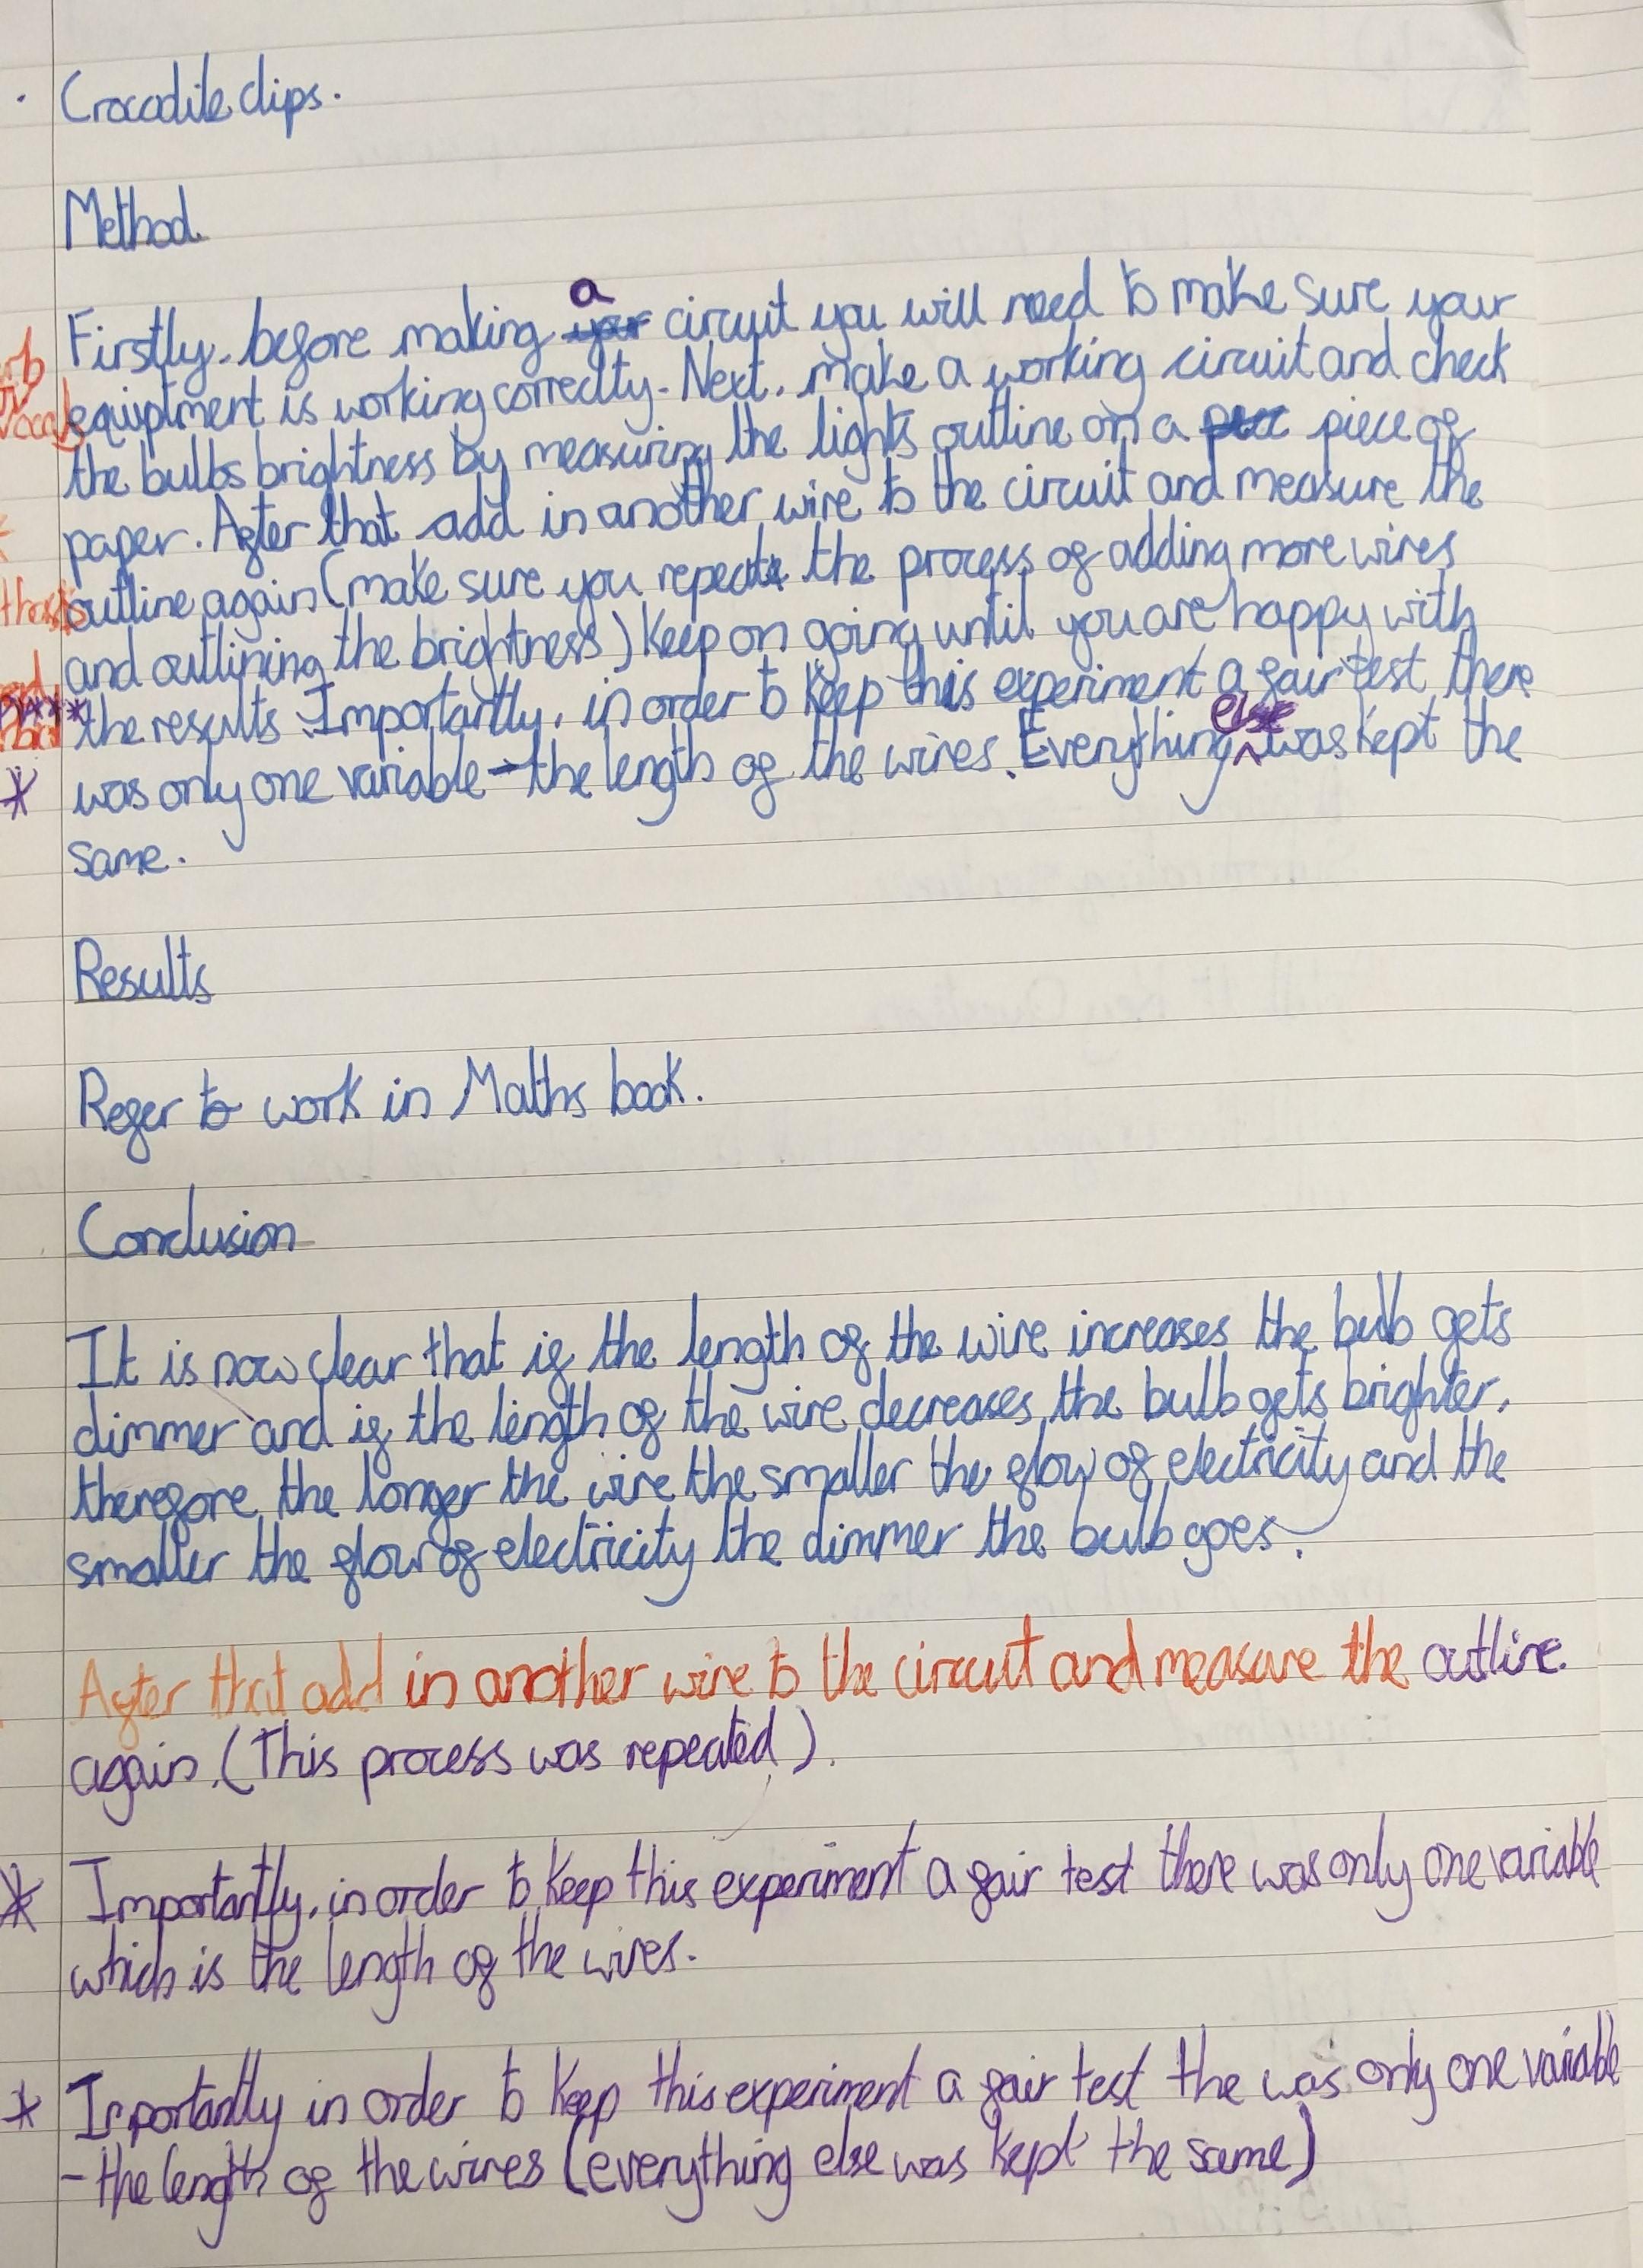 · Crocodile clips.
Method
Firstly, before making a circuit you will need to make sure your
equiptment is working correctly. Next, make a working circuit and check
the bulbs brightness by measuring the lights outline on a piece of
paper. After that add in another wire to the circuit and measure the
outline again (make sure you repeat the process of adding more wires
and outlining the brightness) Keep on going until you are happy with
the results. Importantly, in order to keep this experiment a fair test there
* was only one variable - the length of the wires. Everything else was kept the
same.
Results
Refer to work in Maths book.
Conclusion
It is now clear that if the length of the wire increases the bulb gets
dimmer and if the length of the wire decreases the bulb gets brighter,
therefore the longer the wire the smaller the flow of electricity and the
smaller the flow of electricity the dimmer the bulb goes.
After that add in another wire to the circuit and measure the outline
again. (This process was repeated).
* Importantly, in order to keep this experiment a fair test there was only one variable
which is the length of the wires.
* Importantly in order to keep this experiment a fair test the was only one variable
- the length of the wires (everything else was kept the same)